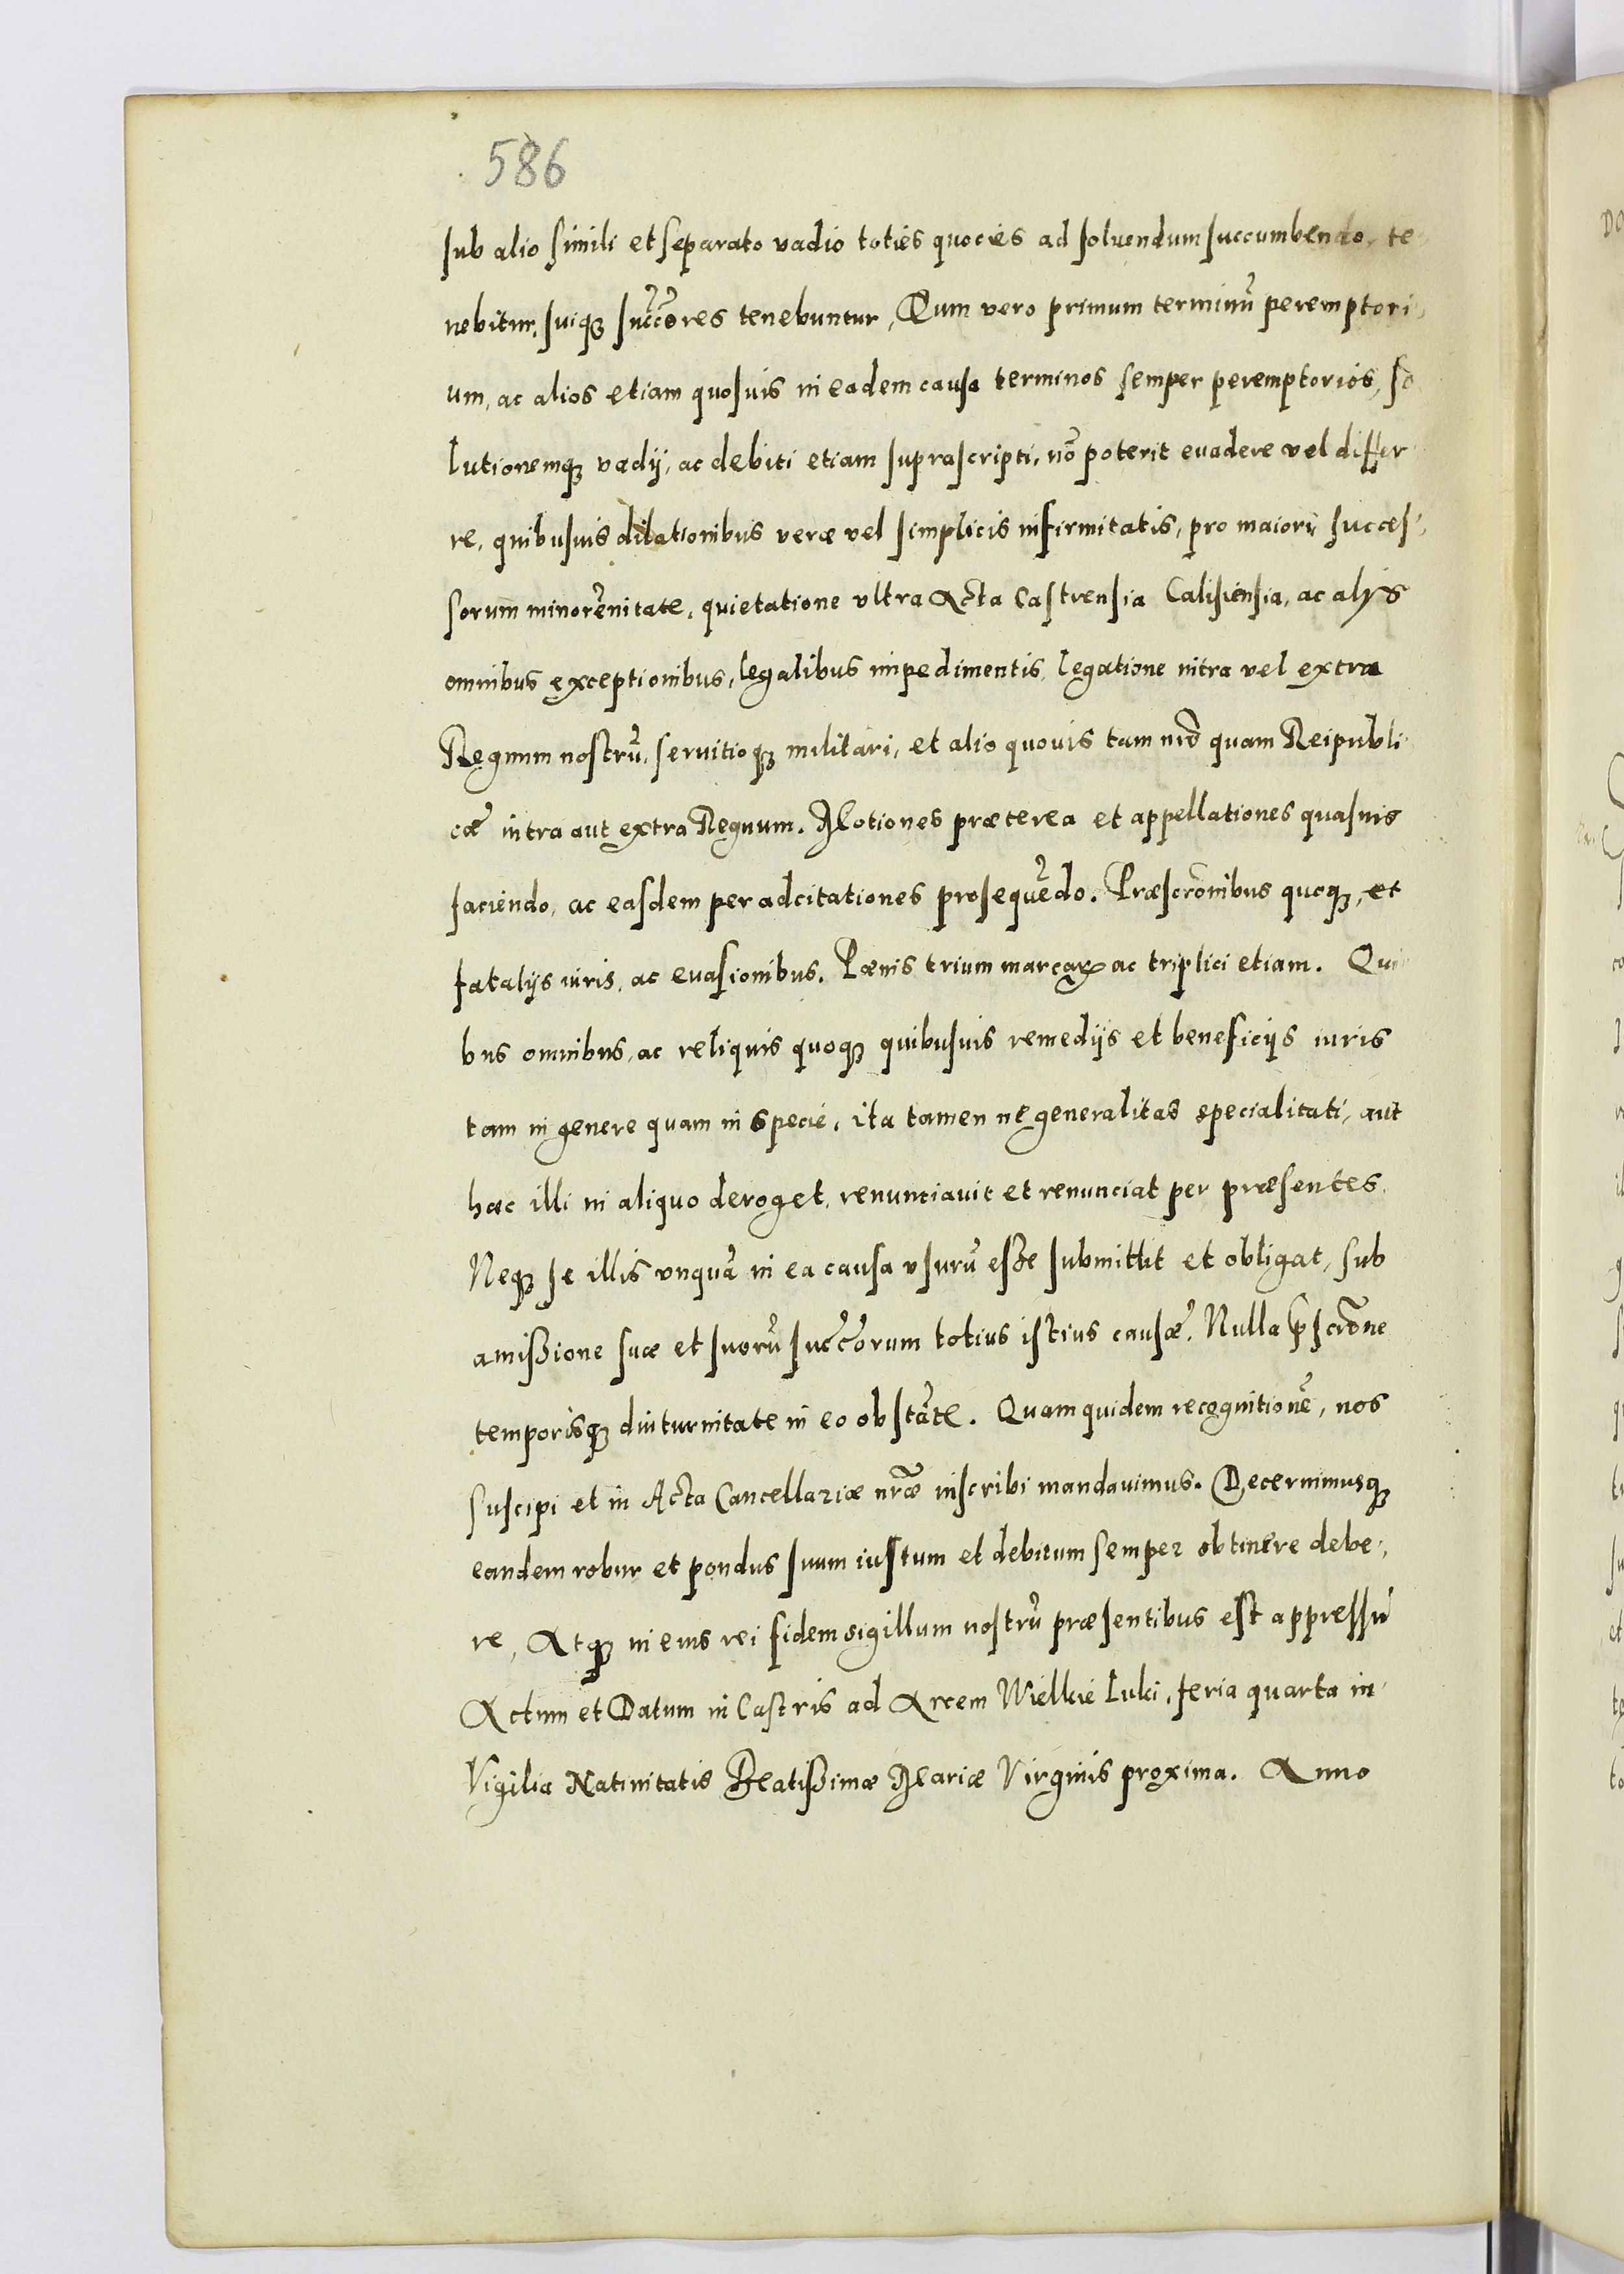 586
sub alio simili et separato vadio toties quocies ad soluendum succumbendo, te
nebitur, suiq3 succ̃ores tenebuntur, Quum vero primum terminũ peremptori
um, ac alios etiam quosuis in eadem causa terminos semper peremptorios, so
lutionemq3 vadij, ac debiti etiam suprascripti, nõ poterit euadere vel differ
re, quibusuis dilationibus veræ vel simplicis infirmitatis, pro maiori, succes,
sorum minorẽnitate, quietatione vltra Acta Castrensia Calisiensia, ac alys
omnibus exceptionibus, legalibus impedimentis, legatione intra vel extra
Regnum nostrũ, seruitioq3 militari, et alio quouis tam nr̃o quam Reipubli
cæ intra aut extra Regnum. Motiones præterea et appellationes quasuis
faciendo, ac easdem per adcitationes prosequẽdo. Præscrõnibus quoq3, et
fatalijs iuris, ac euasionibus. Pœnis trium marcaꝝ ac triplici etiam. Qui
bus omnibus, ac reliquis quoq3 quibusuis remedijs et beneficijs iuris
tam in genere quam in specie, ita tamen ne generalitas specialitati, aut
hæc illi in aliquo deroget, renunciauit et renunciat per præsentes.
Neq3 se illis vnquã in ea causa vsurũ esse submittit et obligat, sub
amißione suæ et suorũ succ̃orum totius istius causæ. Nulla p̃scrõne
temporisq3 diuturnitate in eo obstãte. Quam quidem recognitionẽ, nos
suscipi et in Acta Cancellariæ nr̃æ inscribi mandauimus. Decernimusq3
eandem robur et pondus suum iustum et debitum semper obtinere debe,
re, Atq3 in eius rei fidem sigillum nostrũ præsentibus est appressũ
Actum et Datum in Castris ad Arcem Wielkie Luki, feria quarta in
Vigilia Natiuitatis Beatißimæ Mariæ Virginis proxima. Anno